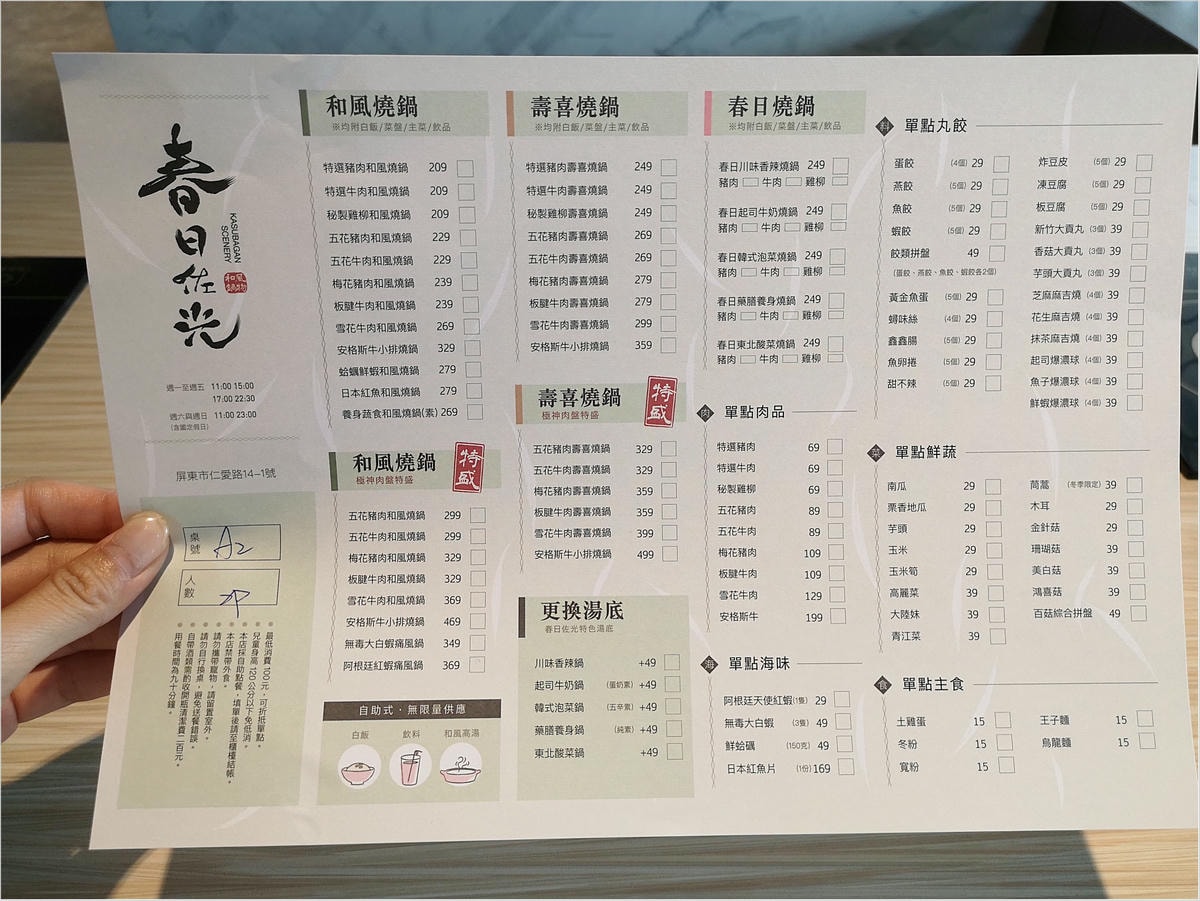 春日佐光
KASUBAGAN
SCENERY
和風
鍋物
週一至週五 11:00 15:00
17:00 22:30
週六與週日 11:00 23:00
(含國定假日)
屏東市仁愛路14-1號
桌號 A2
人數 2P
最低消費100元,可折抵單點。
兒童身高120公分以下免低消。
本店採自助點餐,填單後請至櫃檯結帳。
本店禁帶外食。
請勿攜帶寵物,請留置室外。
請勿自行換桌,避免送餐錯誤。
自帶酒類需酌收開瓶清潔費二百元。
用餐時間為九十分鐘。
和風燒鍋
※均附白飯/菜盤/主菜/飲品
特選豬肉和風燒鍋 209
特選牛肉和風燒鍋 209
秘製雞柳和風燒鍋 209
五花豬肉和風燒鍋 229
五花牛肉和風燒鍋 229
梅花豬肉和風燒鍋 239
板腱牛肉和風燒鍋 239
雪花牛肉和風燒鍋 269
安格斯牛小排燒鍋 329
蛤蠣鮮蝦和風燒鍋 279
日本紅魚和風燒鍋 279
養身蔬食和風燒鍋(素) 269
和風燒鍋
極神肉盤特盛
特盛
五花豬肉和風燒鍋 299
五花牛肉和風燒鍋 299
梅花豬肉和風燒鍋 329
板腱牛肉和風燒鍋 329
雪花牛肉和風燒鍋 369
安格斯牛小排燒鍋 469
無毒大白蝦痛風鍋 349
阿根廷紅蝦痛風鍋 369
自助式·無限量供應
白飯 飲料 和風高湯
壽喜燒鍋
※均附白飯/菜盤/主菜/飲品
特選豬肉壽喜燒鍋 249
特選牛肉壽喜燒鍋 249
秘製雞柳壽喜燒鍋 249
五花豬肉壽喜燒鍋 269
五花牛肉壽喜燒鍋 269
梅花豬肉壽喜燒鍋 279
板腱牛肉壽喜燒鍋 279
雪花牛肉壽喜燒鍋 299
安格斯牛小排燒鍋 359
壽喜燒鍋
極神肉盤特盛
特盛
五花豬肉壽喜燒鍋 329
五花牛肉壽喜燒鍋 329
梅花豬肉壽喜燒鍋 359
板腱牛肉壽喜燒鍋 359
雪花牛肉壽喜燒鍋 399
安格斯牛小排燒鍋 499
更換湯底
春日佐光特色湯底
川味香辣鍋 +49
起司牛奶鍋 (蛋奶素) +49
韓式泡菜鍋 (五辛素) +49
藥膳養身鍋 (純素) +49
東北酸菜鍋 +49
春日燒鍋
※均附白飯/菜盤/主菜/飲品
春日川味香辣燒鍋 249
豬肉 牛肉 雞柳
春日起司牛奶燒鍋 249
豬肉 牛肉 雞柳
春日韓式泡菜燒鍋 249
豬肉 牛肉 雞柳
春日藥膳養身燒鍋 249
豬肉 牛肉 雞柳
春日東北酸菜燒鍋 249
豬肉 牛肉 雞柳
肉 單點肉品
特選豬肉 69
特選牛肉 69
秘製雞柳 69
五花豬肉 89
五花牛肉 89
梅花豬肉 109
板腱牛肉 109
雪花牛肉 129
安格斯牛 199
海 單點海味
阿根廷天使紅蝦(1隻) 29
無毒大白蝦 (3隻) 49
鮮蛤蠣 (150克) 49
日本紅魚片 (1份) 169
料 單點丸餃
蛋餃 (4個) 29
燕餃 (5個) 29
魚餃 (5個) 29
蝦餃 (5個) 29
餃類拼盤 49
(蛋餃、燕餃、魚餃、蝦餃各2個)
黃金魚蛋 (5個) 29
蟳味絲 (4個) 29
鑫鑫腸 (5個) 29
魚卵捲 (5個) 29
甜不辣 (5個) 29
炸豆皮 (5個) 29
凍豆腐 (5個) 29
板豆腐 (5個) 29
新竹大貢丸 (3個) 39
香菇大貢丸 (3個) 39
芋頭大貢丸 (3個) 39
芝麻麻吉燒 (4個) 39
花生麻吉燒 (4個) 39
抹茶麻吉燒 (4個) 39
起司爆濃球 (4個) 39
魚子爆濃球 (4個) 39
鮮蝦爆濃球 (4個) 39
菜 單點鮮蔬
南瓜 29
栗香地瓜 29
芋頭 29
玉米 29
玉米筍 29
高麗菜 39
大陸妹 39
青江菜 39
茼蒿 (冬季限定) 39
木耳 29
金針菇 29
珊瑚菇 39
美白菇 39
鴻喜菇 39
百菇綜合拼盤 49
食 單點主食
土雞蛋 15
冬粉 15
寬粉 15
王子麵 15
烏龍麵 15